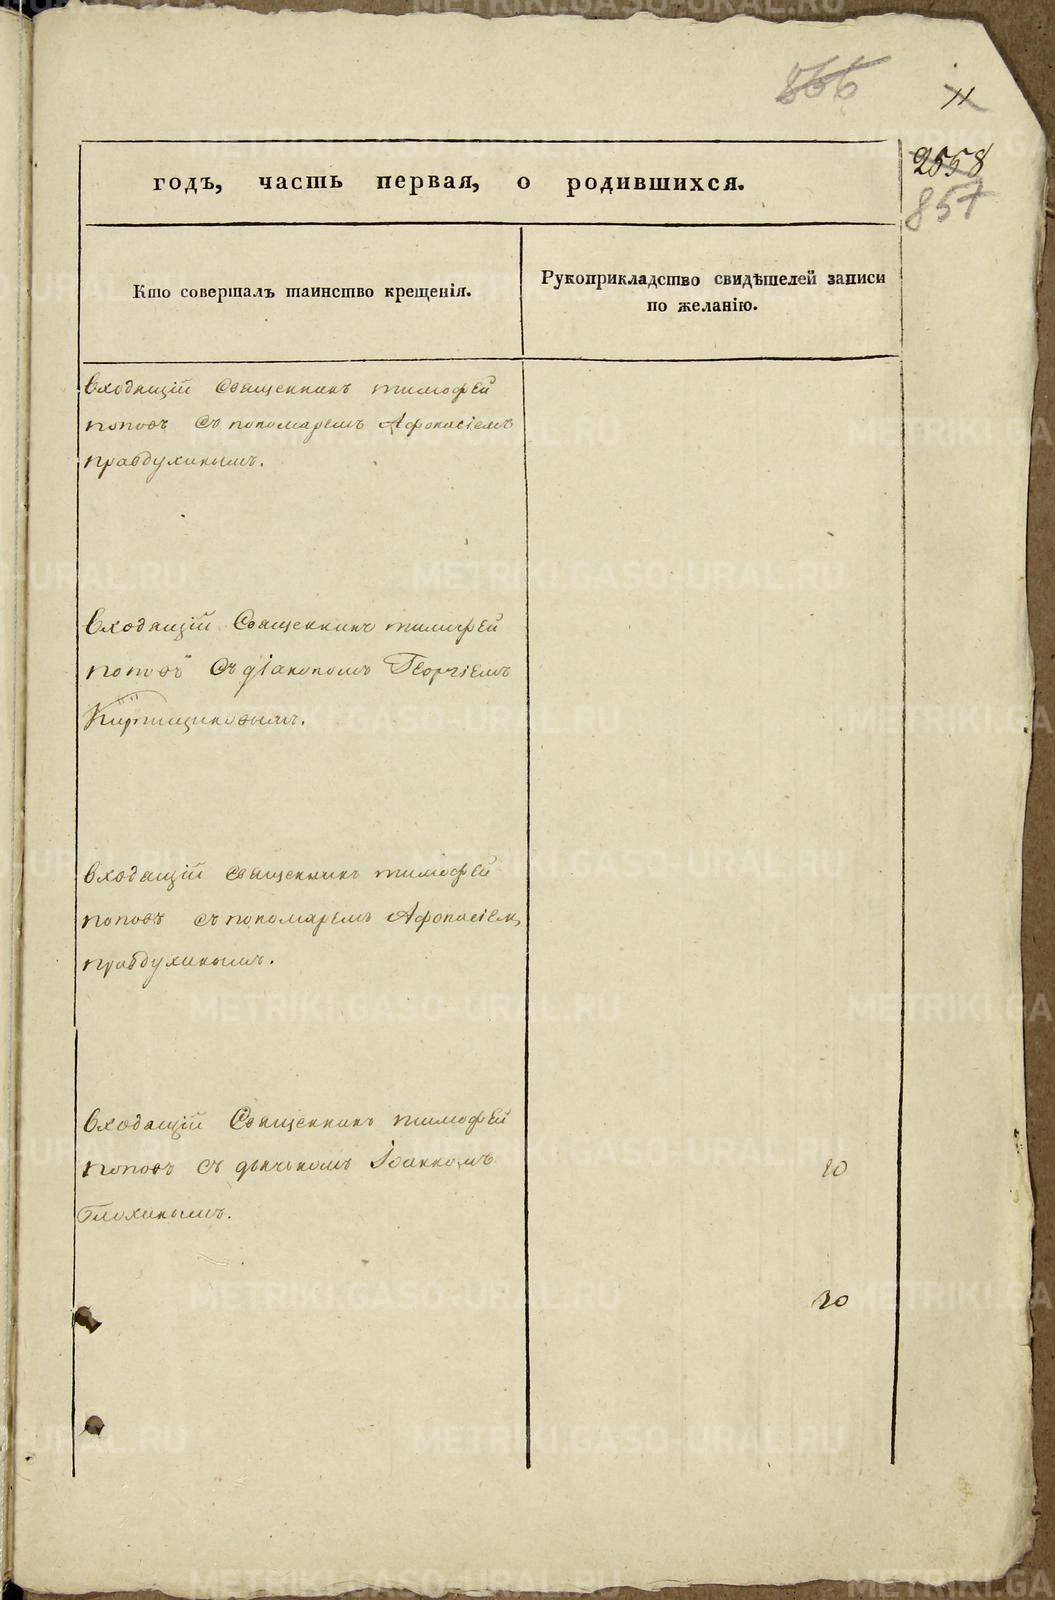 866
11
2558
857
годъ, часть первая, о родившихся.
Кто совершалъ таинство крещенія.
Рукоприкладство свидѣтелей записи
по желанію.
Входящій Священникъ тимофей
поповъ Съ пономаремъ Афонасіемъ
правдухинымъ.
Входящій Священникъ тимофей
поповъ Съ діакономъ Георгіемъ
Кирпищиковымъ.
входящій священникъ тимофей
поповъ съ пономаремъ Афонасіемъ
правдухинымъ.
входящій Священникъ тимофей
поповъ съ дьячкомъ Іоанномъ
Глохинымъ.
10
10
METRIKI.GASO-URAL.RU